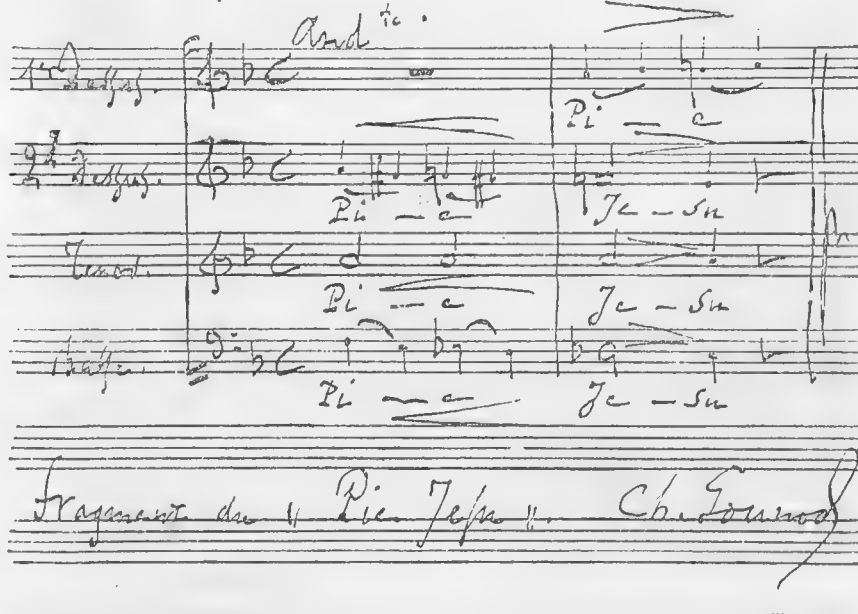 Andte.
1er Dessus.
Pi — e
2d Dessus.
Pi — e Je — su
Tenor.
Pi — e Je — su
Basse.
Pi — e Je — su
Fragment du " Pie Jesu ". Ch. Gounod